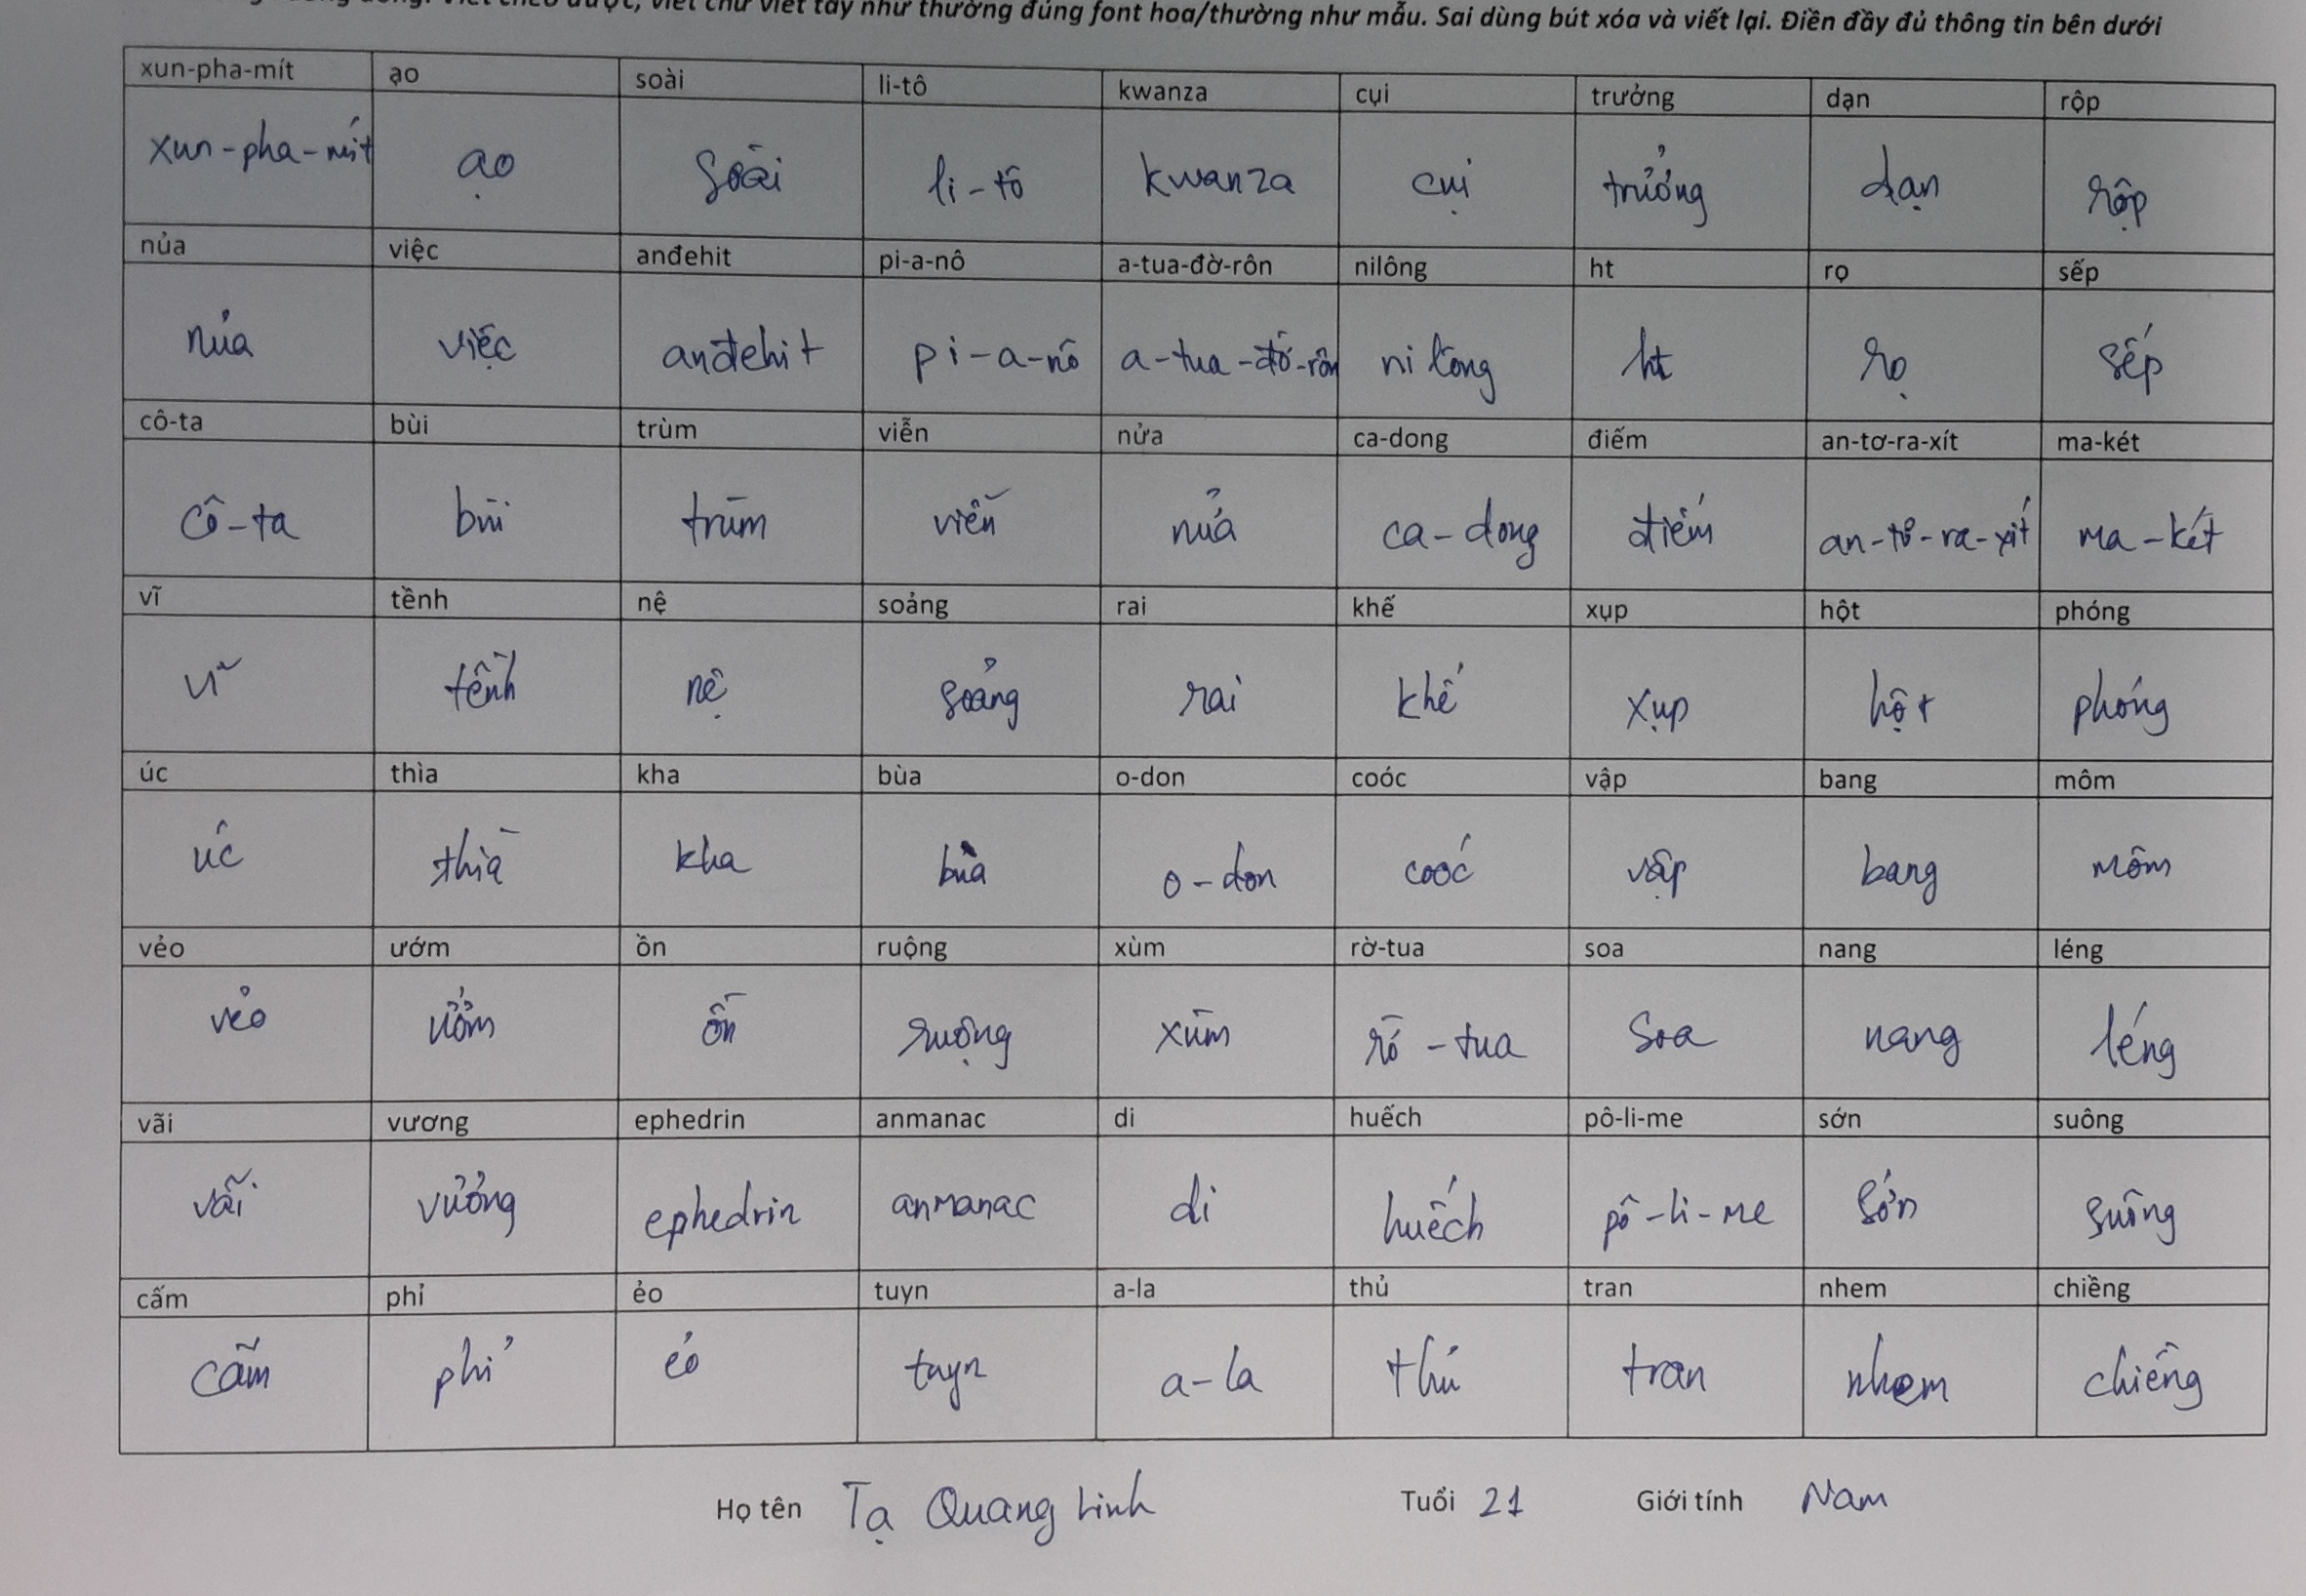 viết chữ viết tay như thường đúng font hoa/thường như mẫu. Sai dùng bút xóa và viết lại. Điền đầy đủ thông tin bên dưới
xun-pha-mít ạo soài li-tô kwanza cụi trưởng dạn rộp
xun-pha-mít ạo soài li-tô kwanza cụi trưởng dạn rộp
nủa việc anđehit pi-a-nô a-tua-đờ-rôn nilông ht rọ sếp
nủa việc anđehit pi-a-nô a-tua-đờ-rôn nilông ht rọ sếp
cô-ta bùi trùm viễn nửa ca-dong điếm an-tơ-ra-xít ma-két
cô-ta bùi trùm viễn nửa ca-dong điếm an-tơ-ra-xít ma-két
vĩ tềnh nệ soảng rai khế xụp hột phóng
vĩ tềnh nệ soảng rai khế xụp hột phóng
úc thìa kha bùa o-don coóc vập bang môm
úc thìa kha bùa o-don coóc vập bang môm
vẻo ướm ồn ruộng xùm rờ-tua soa nang léng
vẻo ướm ồn ruộng xùm rờ-tua soa nang léng
vãi vương ephedrin anmanac di huếch pô-li-me sớn suông
vãi vương ephedrin anmanac di huếch pô-li-me sớn suông
cấm phỉ ẻo tuyn a-la thủ tran nhem chiềng
cấm phỉ ẻo tuyn a-la thủ tran nhem chiềng
Họ tên Tạ Quang Linh Tuổi 21 Giới tính Nam